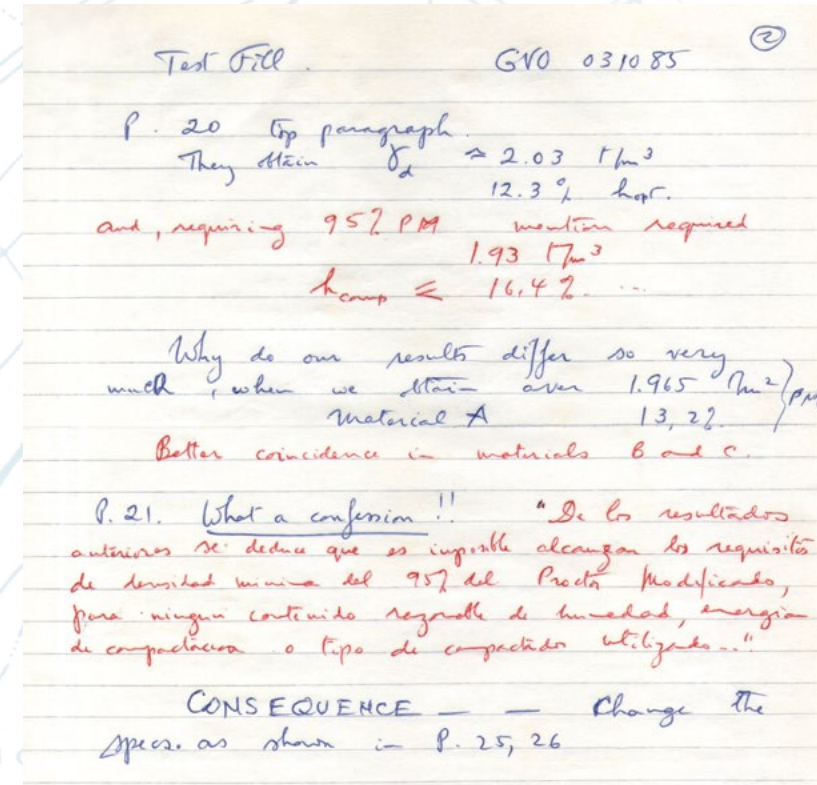 ②
Test Fill. GVO 031085
P. 20 top paragraph.
They obtain γd ≈ 2.03 T/m³
12.3 % hopt.
and, requiring 95% PM mention required
1.93 T/m³
hcomp ≤ 16,4 %. ...
Why do our results differ so very
much, when we obtain over 1.965 T/m² } PM
Material A 13,2%
Better coincidence in materials B and C.
P. 21. What a confession!! "De los resultados
anteriores se deduce que es imposible alcanzar los requisitos
de densidad minima del 95% del Proctor Modificado,
para ningun contenido razonable de humedad, energia
de compactacion o tipo de compactador utilizado..."
CONSEQUENCE — — Change the
specs. as shown in P. 25, 26